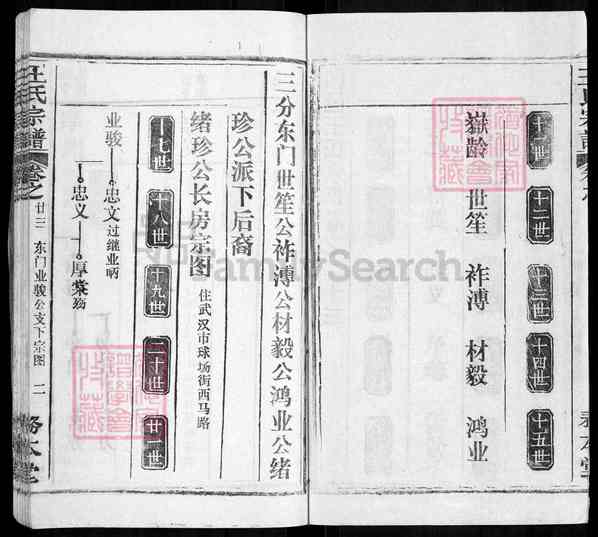 十一世
十二世
十三世
十四世
十五世
嶽龄
世笙
祚溥
材毅
鸿业
三分东门世笙公祚溥公材毅公鸿业公绪
珍公派下后裔
绪珍公长房宗图
住武汉市球场街西马路
十七世
十八世
十九世
二十世
廿一世
业骏
忠文
过继业昞
忠义
厚棠
殇
王氏宗譜
卷之
廿三
东门业骏公支下宗图
二
务本堂
FamilySearch